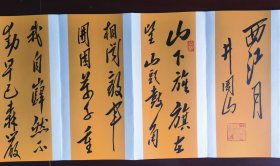 西江月
井冈山
山下旌旗在
望山头鼓角
相闻敌军
围困万千重
我自岿然不
动早已森严